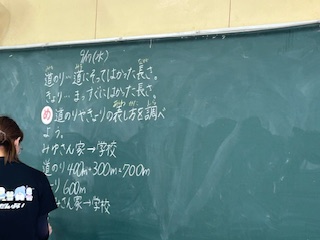 9/17(水)
道のり…道にそってはかった長さ。
きょり…まっすぐにはかった長さ。
め 道のりやきょりの表し方を調べ
よう。
みゆさん家→学校
道のり 400m+300m=700m
り 600m
さん家→学校